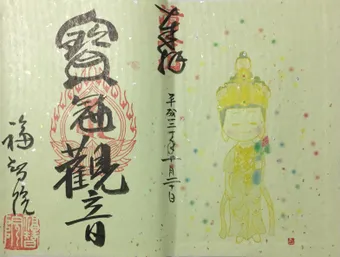 奉拝
平成三十年十月二十日
寶冠觀音
福智院